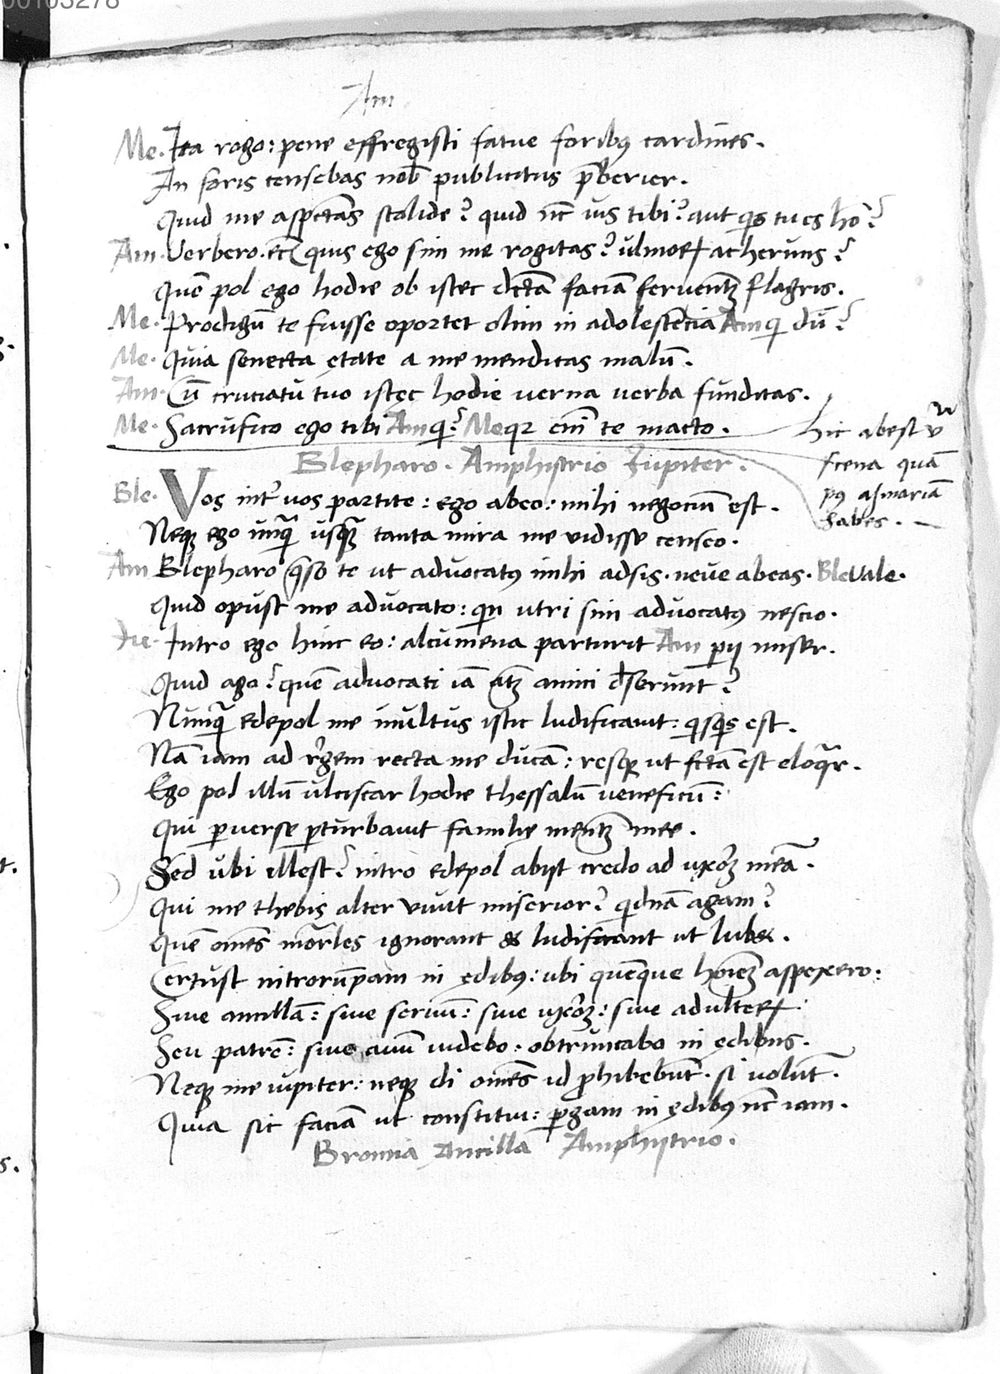 00103278
Am
Me. Ita rogo: pene effregisti fatue foribꝰ cardines.
An foris censebas nob̄ publicitus p̄berier.
Quid me aspectas stolide? quid nc̄ uis tibi? aut qͥs tu es hō?
Am. Verbero. etiā quis ego sim me rogitas? ulmoꝝ acheruns?
Quē pol ego hodie ob istec dc̄ta faciā feruentē flagris.
Me. Prodigū te fuisse oportet olim in adolescēcia Am qͥ dū?
Me. Quia senecta ętate a me mendicas malū.
Am. Cū cruciatu tuo istec hodie uerna uerba funditas.
Me. Sacrufico ego tibi Am qͥ? Me qꝛ enī te macto.
hic abest v̄
scena quā
pꝰ asinariā
habes.
Blepharo. Amphitrio Iupiter.
Ble. Vos int̄ uos partite: ego abeo: mihi negociū est.
Neqꝫ ego ūnqͣ usqͣ tanta mira me uidisse censeo.
Am Blepharo q̄so te ut aduocatꝰ mihi adsis. neue abeas. Ble Vale.
Quid opust me aduocato: qͥn utri sim aduocatꝰ nescio.
Iu. Intro ego hinc eo: alcumena parturit Am ꝑij miser.
Quid ago? quē aduocati iā atqꝫ amici deserunt?
Nūnqͣ edepol me inultus istic ludificauit: qͥsqͥs est.
Nā iam ad rēgem recta me ducā: resqꝫ ut fc̄ta est eloqͣr.
Ego pol illū ulciscar hodie thessalū ueneficū:
Qui ꝑuerse ꝑturbauit familię mentē mee.
Sed ubi illest? intro edepol abijt credo ad uxorē meā.
Qui me thebis alter uiuit miserior? qͥdnā agam?
Quē om̄es mōrles ignorant & ludificant ut lubet.
Certust introrūpam in ędibꝰ: ubi quēque hoīem aspexero:
Siue ancillā: siue seruū: siue uxorē: siue adulteꝝ:
Seu patrē: siue auū uidebo. obtruncabo in ędibus.
Neqꝫ me iupiter: neqꝫ di om̄es id ꝓhibebūt. si uolūt.
Quia sic faciā ut constitui: ꝑgam in ędibꝰ nc̄ iam.
Bromia Ancilla Amphitrio.